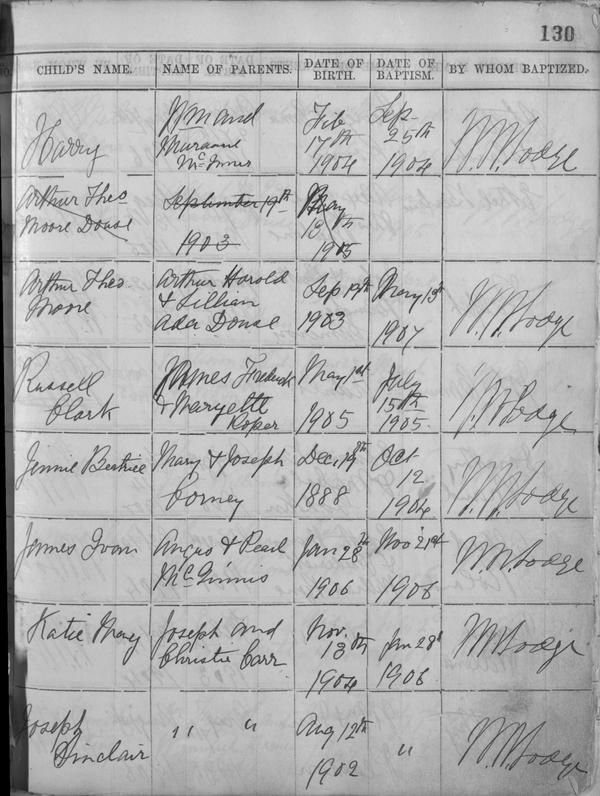 130
CHILD'S NAME. NAME OF PARENTS. DATE OF BIRTH. DATE OF BAPTISM. BY WHOM BAPTIZED.
Harry
Wm and
McInnes
Feb
17th
1904
Sep
25th
1904
W.W. Lodge
Arthur Theo
Moore Douse
September 19th
1903
May
13th
1905
Arthur Theo
Moore
Arthur Harold
& Lillian
Ada Douse
Sep 19th
1903
May 13th
1907
W.W. Lodge
Russell
Clark
James Frederick
& Maryette
Roper
May 1st
1905
July
15th
1905.
W.W. Lodge
Jennie Beatrice
Mary & Joseph
Corney
Dec. 19th
1888
Oct
12
1904
W.W. Lodge
James Ivan
Angus & Pearl
McGinnis
Jan 28th
1906
Nov 21st
1906
W.W. Lodge
Katie Mary
Joseph and
Christie Carr
Nov.
13th
1904
Jan 28th
1906
W.W. Lodge
Joseph
Sinclair
" "
Aug 12th
1902
"
W.W. Lodge